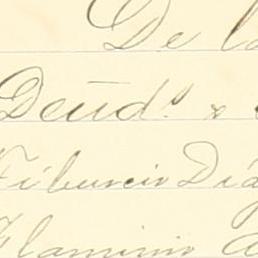 De la
Deud.s &
Tiburcio Día
Flaminio